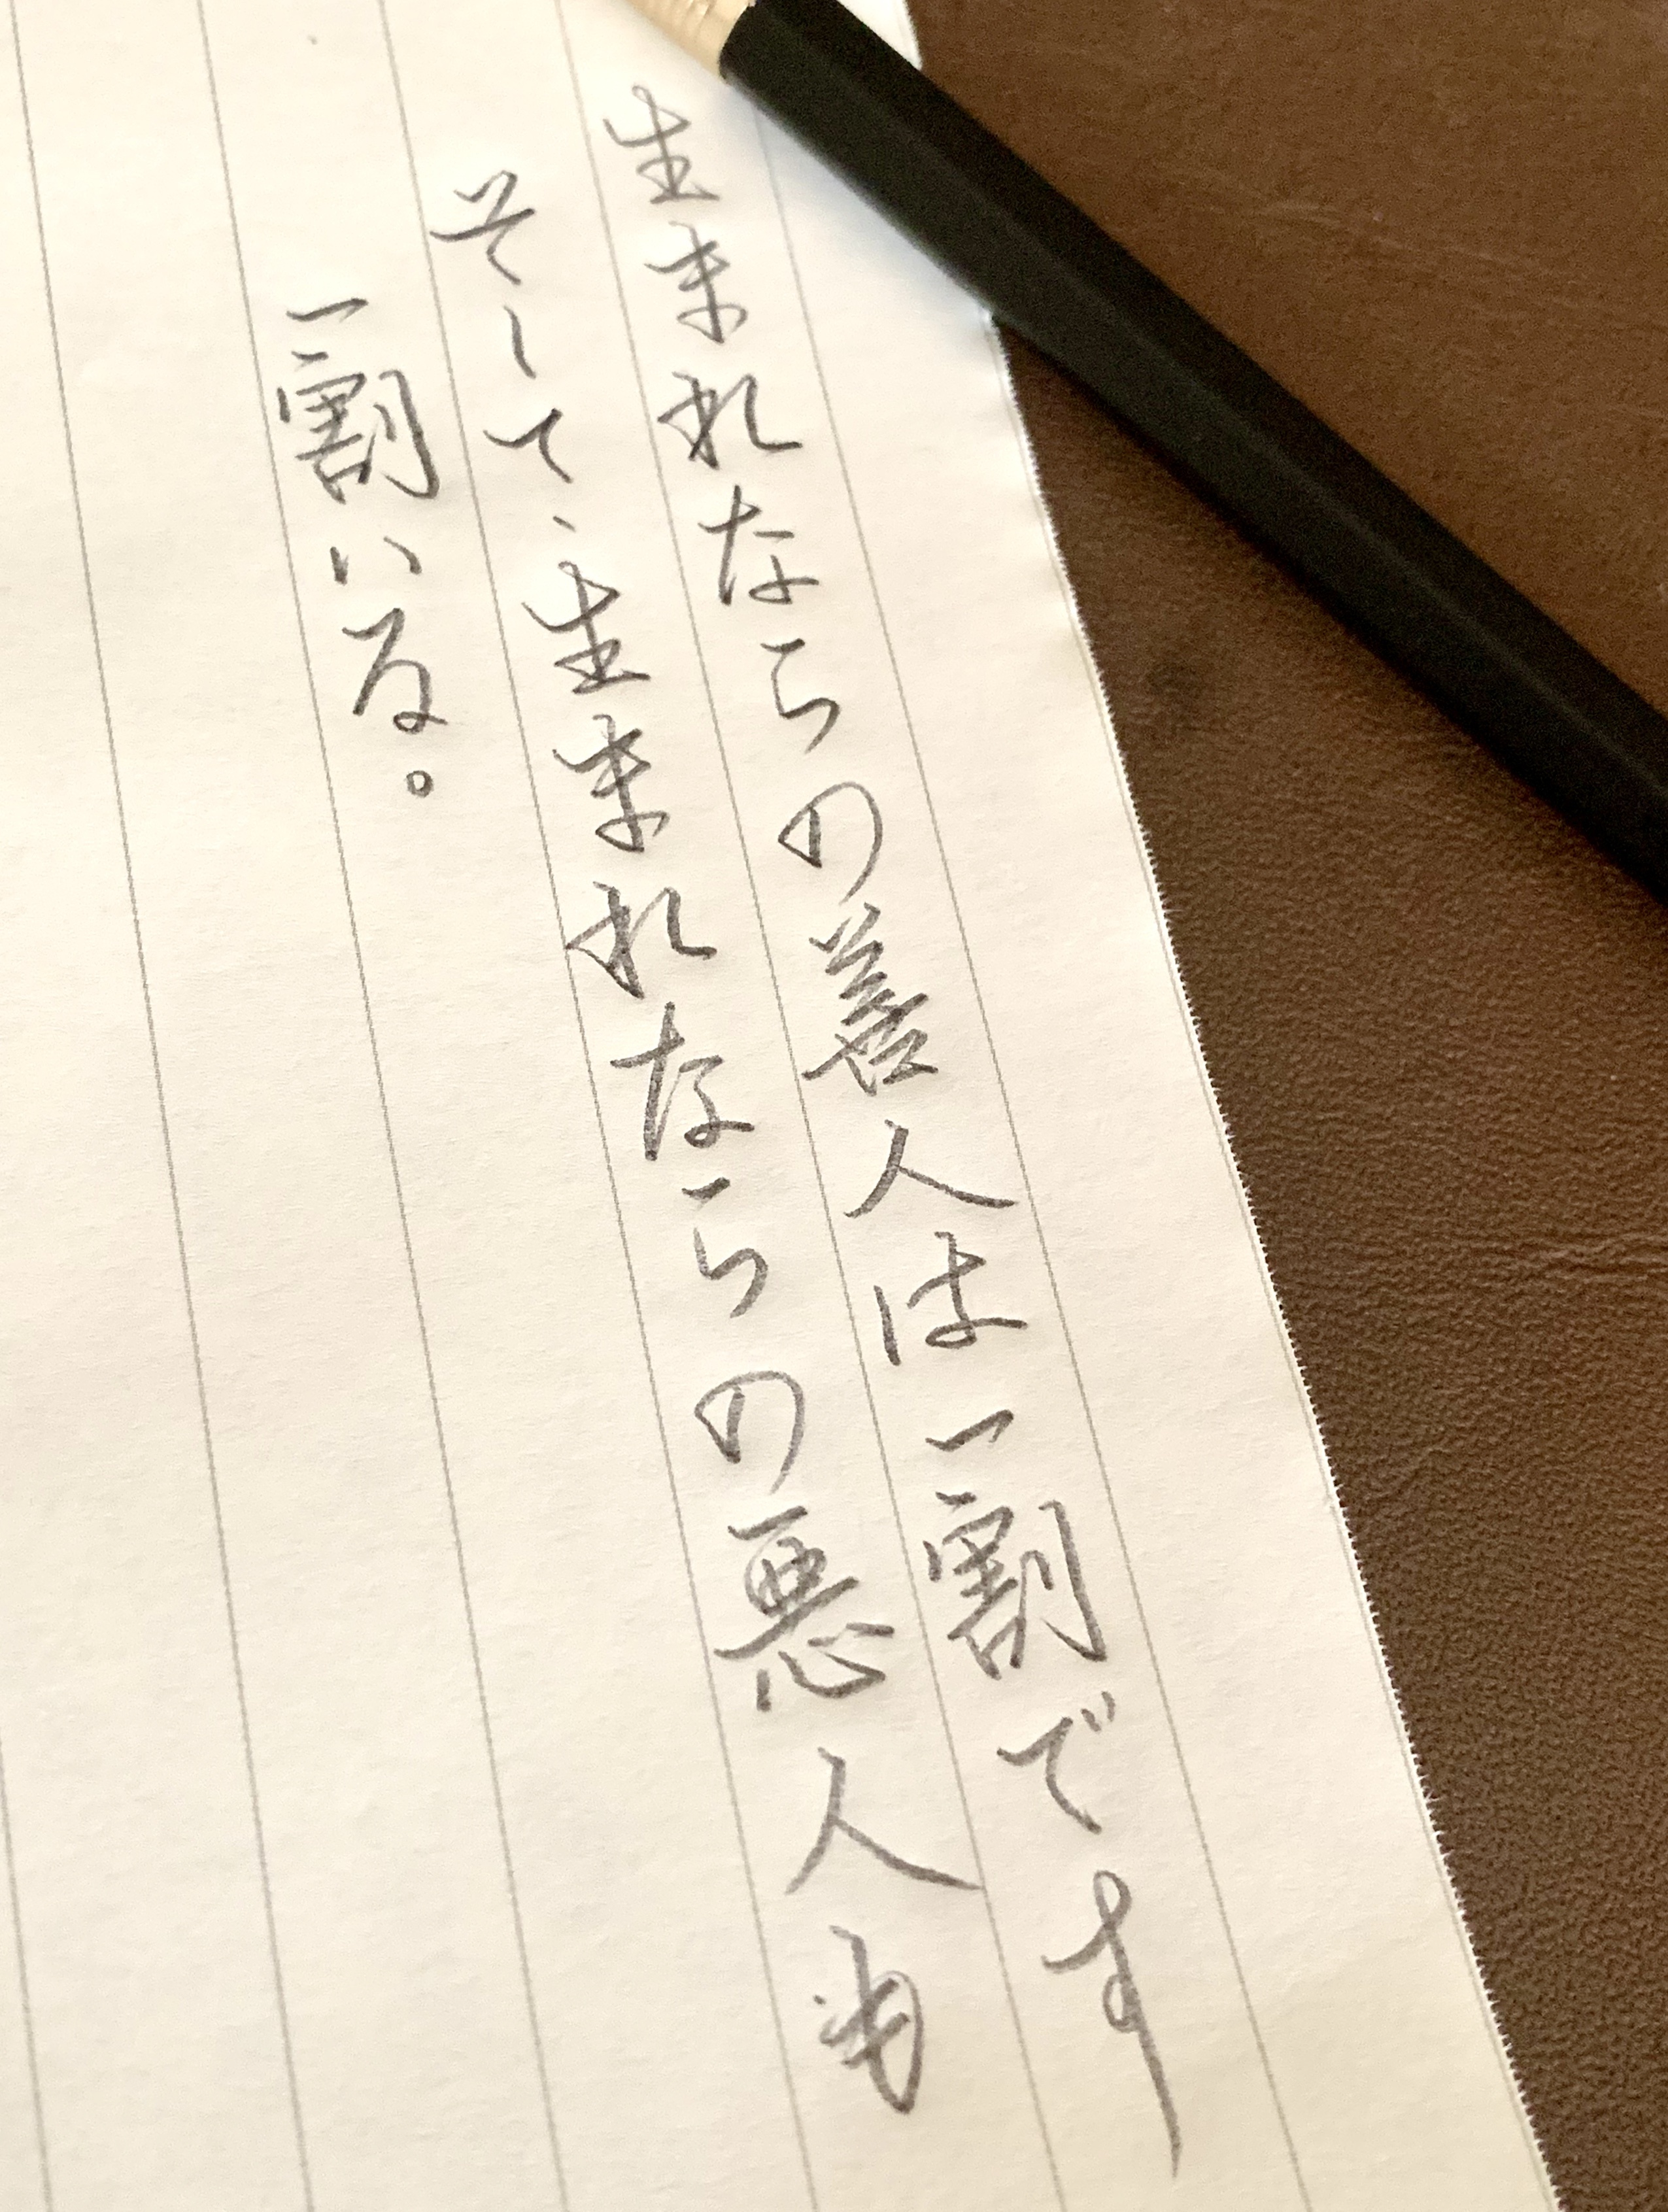 生まれながらの善人は一割です
そして、生まれながらの悪人も
一割いる。